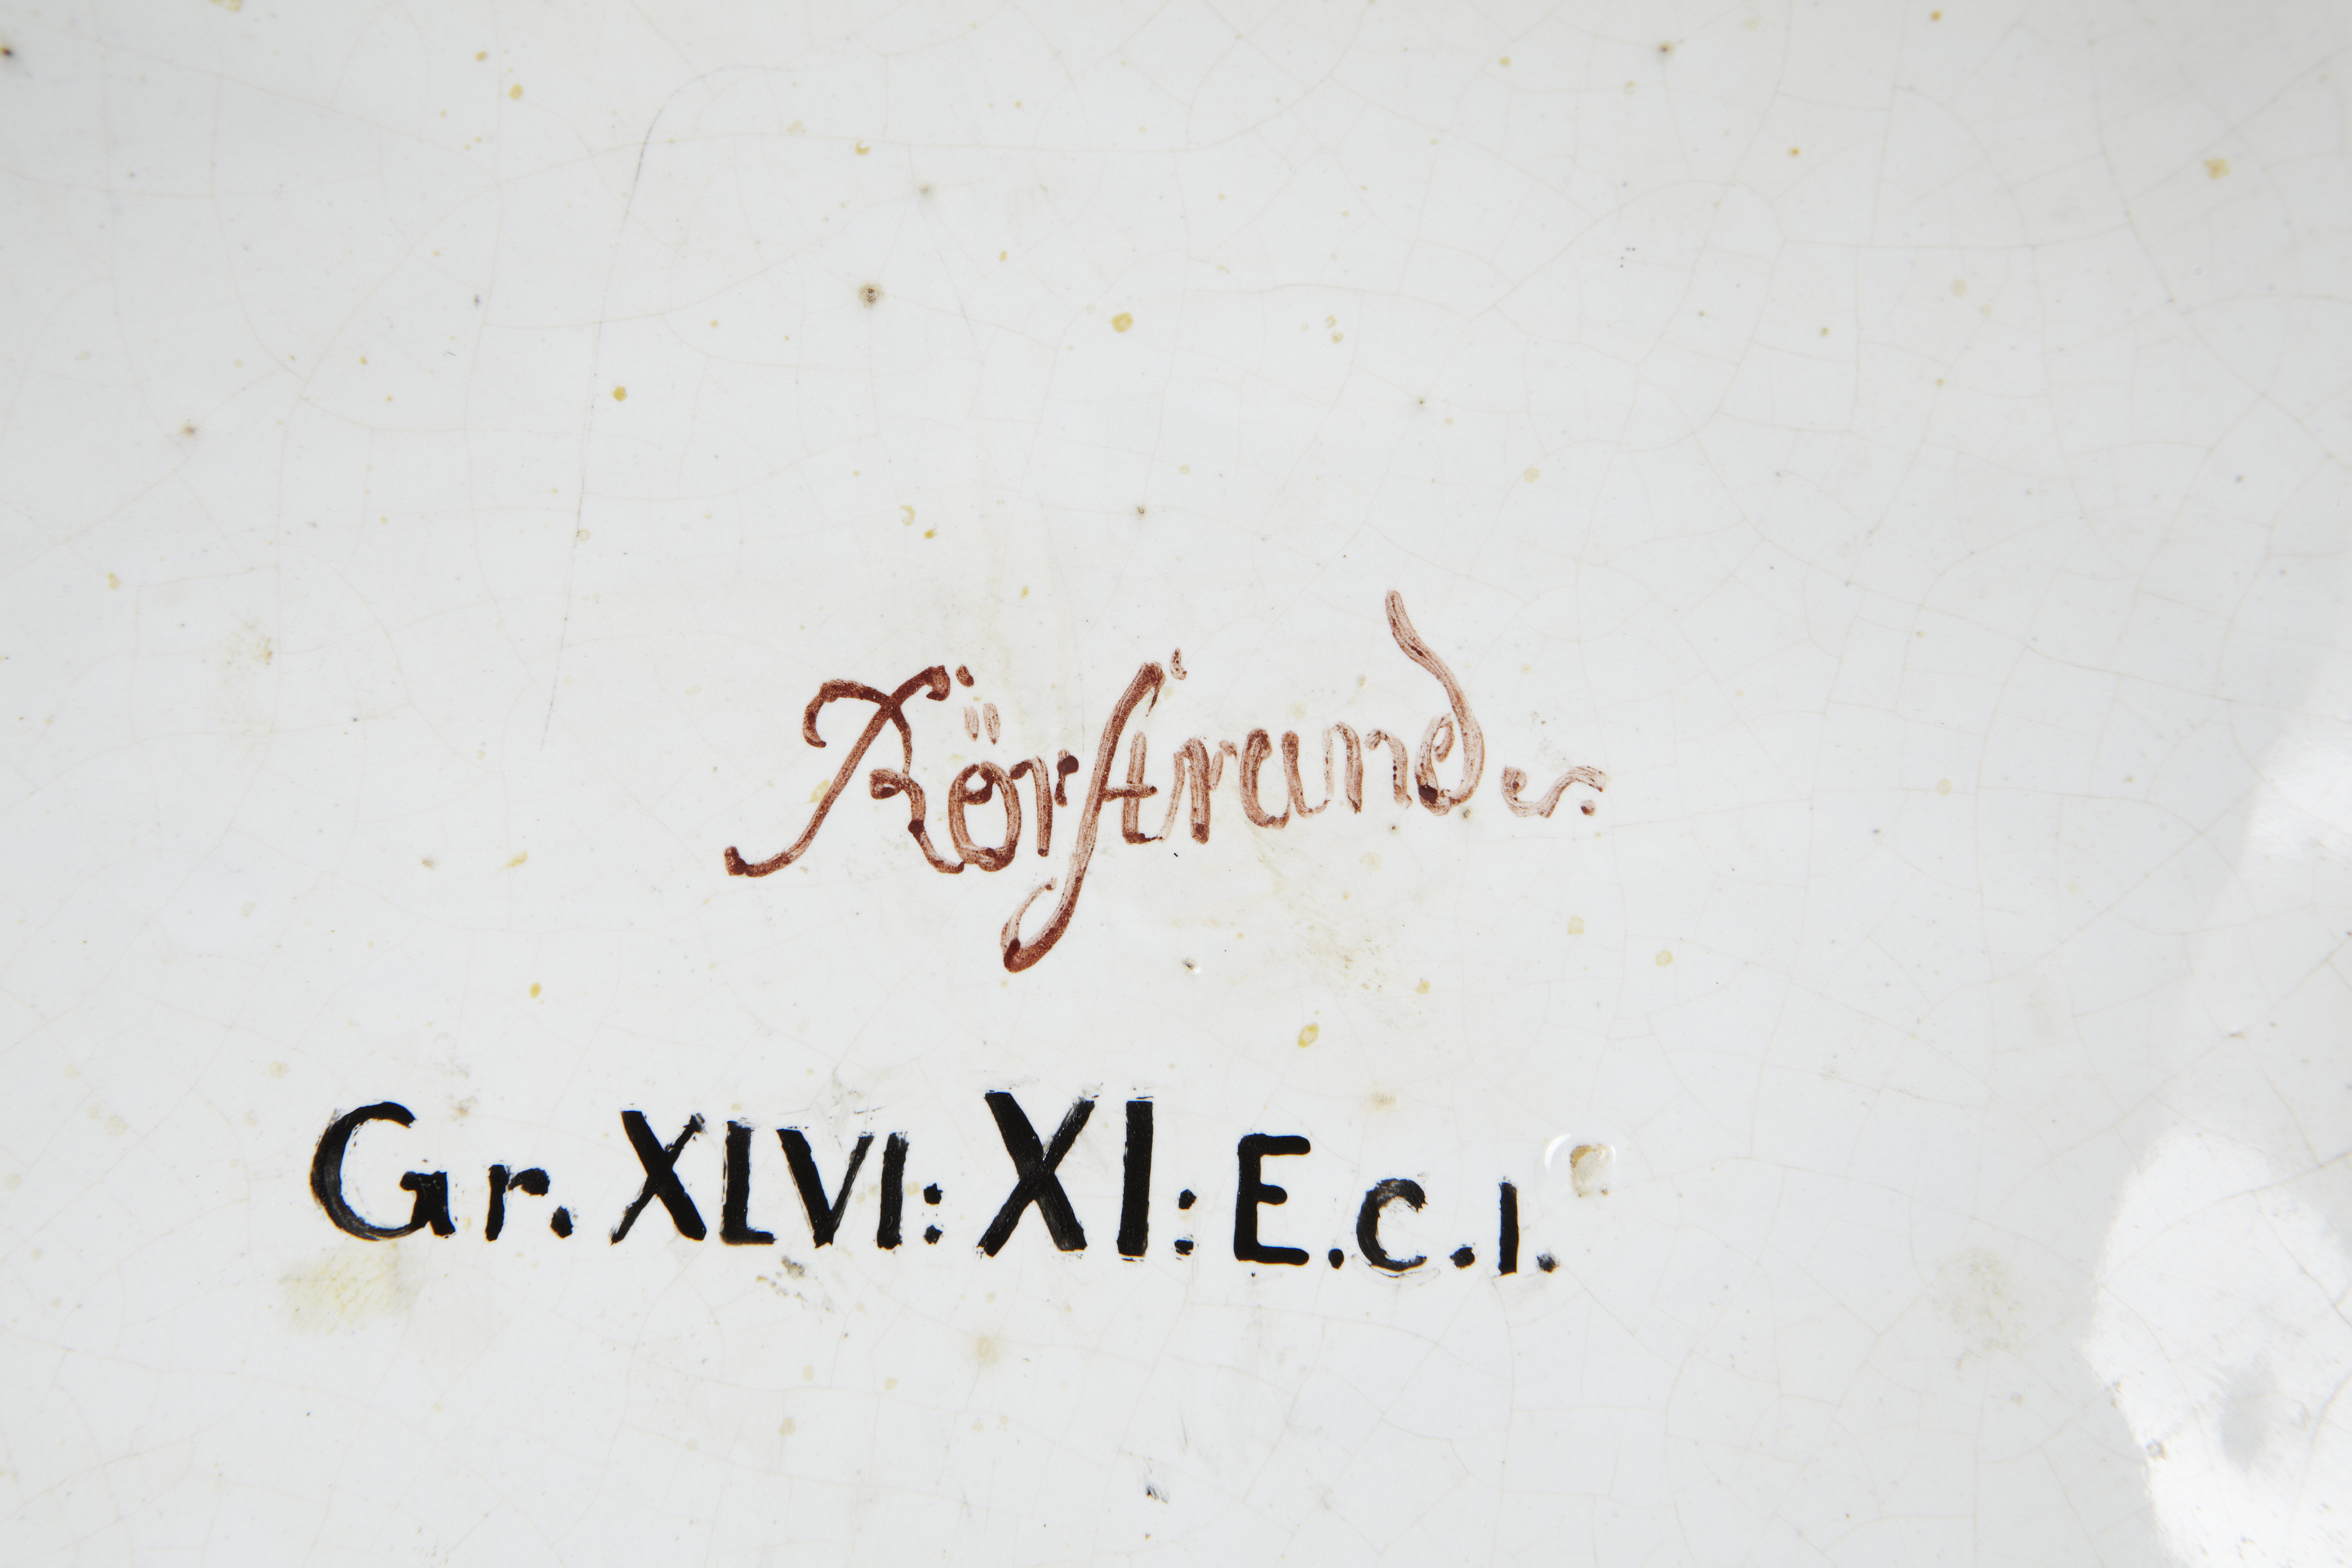 Rörstrand
Gr. XLVI: XI: E.c.1.